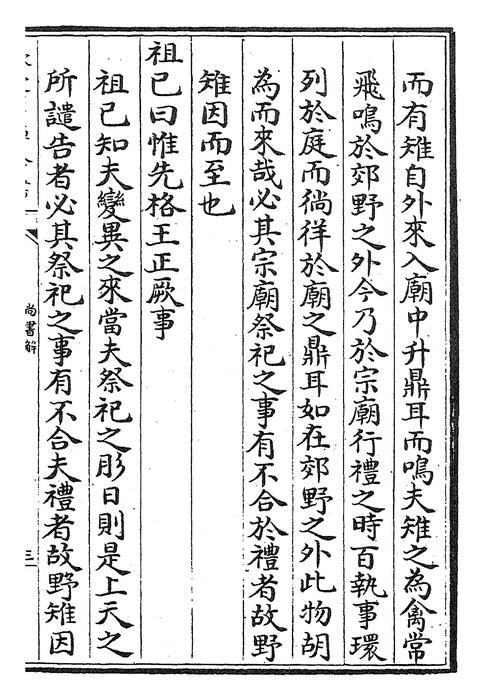 而有雉自外來入廟中升鼎耳而鳴夫雉之為禽常
飛鳴於郊野之外今乃於宗廟行禮之時百執事環
列於庭而徜徉於廟之鼎耳如在郊野之外此物胡
為而來哉必其宗廟祭祀之事有不合於禮者故野
雉因而至也
祖己曰惟先格王正厥事
祖己知夫變異之來當夫祭祀之肜日則是上天之
所譴告者必其祭祀之事有不合夫禮者故野雉因
尚書解
三